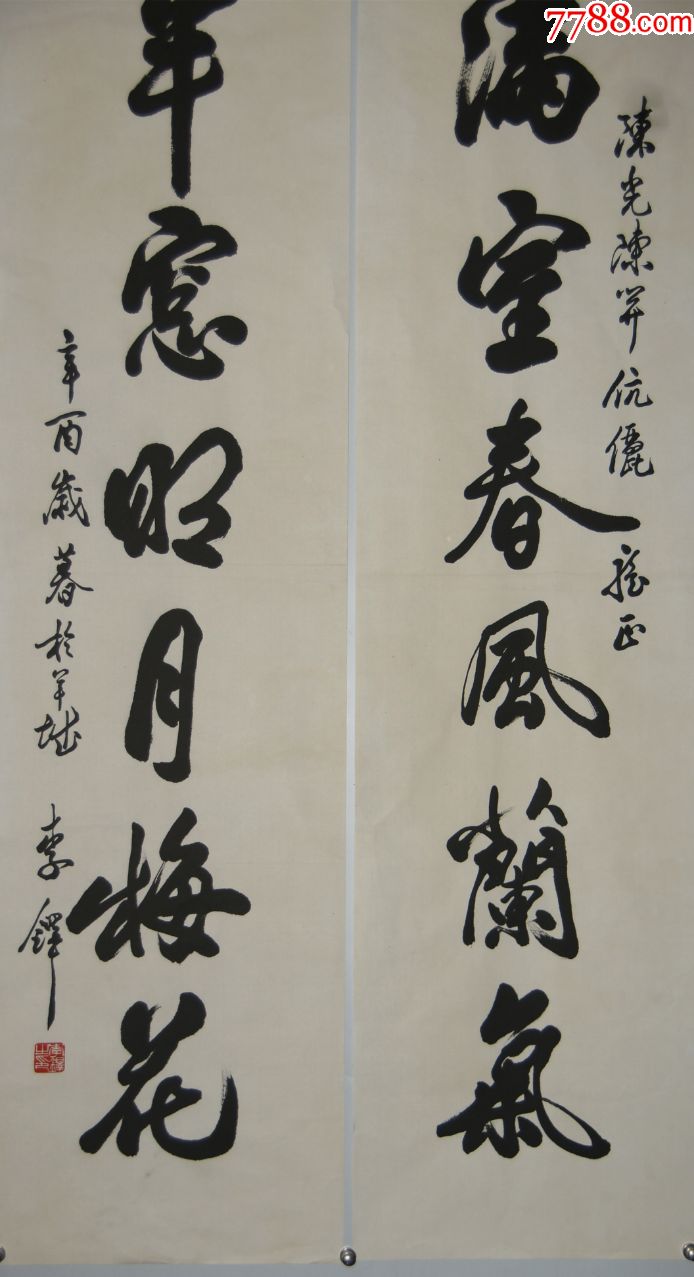 7788.com
陳光陳伉儷雅正
滿室春風蘭氣
半窻明月梅花
辛酉歲暮於羊城 李鐸